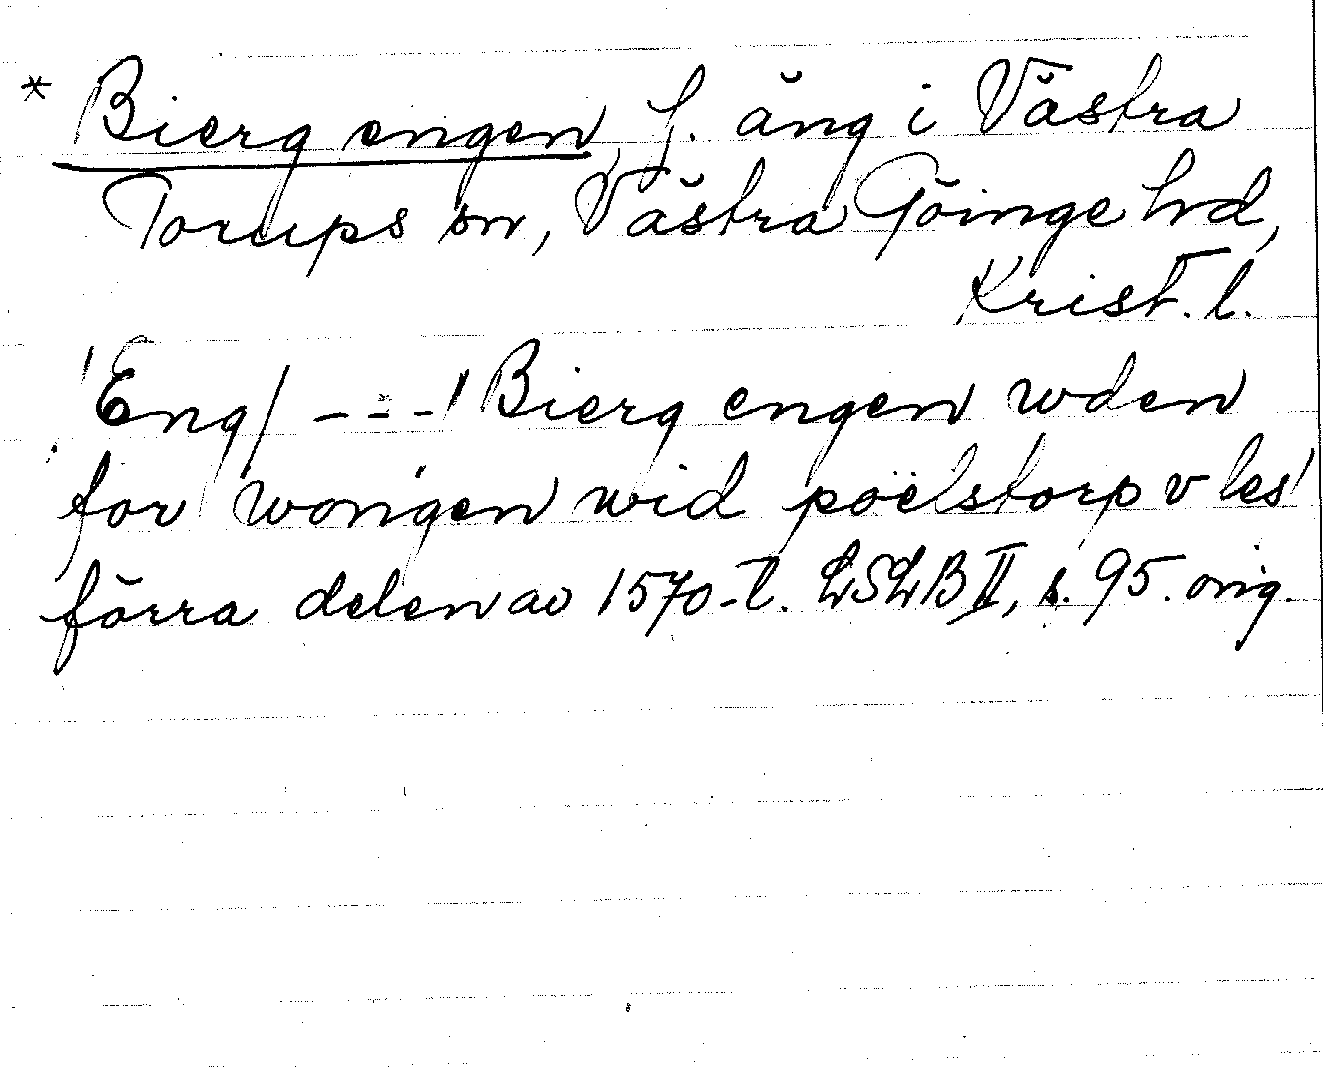 * Bierg engen, f. äng i Västra
Torups sn, Västra Göinge hrd,
Krist. l.
'Eng/ - - - / Bierg engen wden
for wongen wid poëlstorp v les'
förra delen av 1570-t. LSLB II, s. 95. orig.